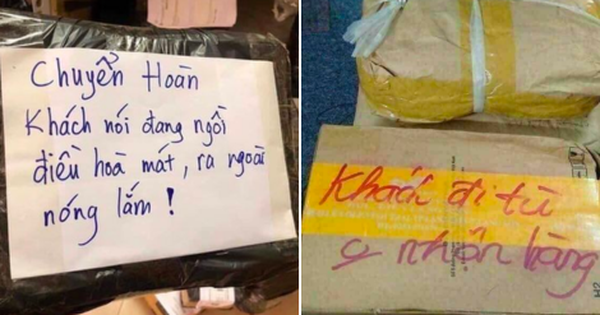 Chuyển Hoàn
Khách nói đang ngồi
điều hoà mát, ra ngoài
nóng lắm !
Khách đi tù
nhân hàng
H2